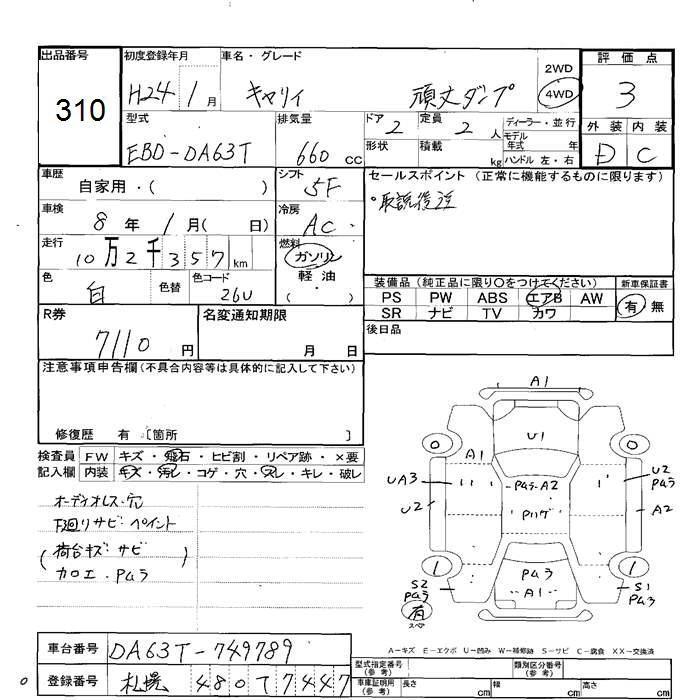 出品番号
310
初度登録年月
H24 1月
車名・グレード
キャリィ 頑丈ダンプ
2WD
4WD
評価点
3
型式
EBD-DA63T
排気量
660cc
ドア
2
定員
2人
ディーラー・並行
モデル
年式 年
形状
積載 kg
ハンドル 左・右
外装 内装
D C
車歴
自家用・( )
シフト
5F
セールスポイント (正常に機能するものに限ります)
車検
8年 1月( 日)
冷房
AC
走行
10万2千357km
燃料
ガソリン
軽油
( )
色
白
色替
色コード
26U
装備品 (純正品に限り○をつけてください)
PS PW ABS エアB AW
SR ナビ TV カワ
新車保証書
有 無
R券
7110円
名変通知期限
月 日
後日品
注意事項申告欄(不具合内容等は具体的に記入して下さい)
修復歴 有 [箇所 ]
検査員
記入欄
FW キズ・飛石・ヒビ割・リペア跡・×要
内装 キズ・汚レ・コゲ・穴・スレ・キレ・破レ
オーディオレス・穴
下廻リサビ・ペイント
(荷台キズ・サビ)
カロエ・Pムラ
A1
U1
A1
UA3
U2
Pムラ・A2
U2
Pムラ
A2
1
1
Pムラ
A1
S2
Pムラ
有
スペア
S1
A-キズ E-エクボ U-凹み W-補修跡 S-サビ C-腐食 XX-交換済
車台番号
DA63T-749789
登録番号
札幌 480 7447
型式指定番号
(参考)
類別区分番号
(参考)
車庫証明用
(参考)
長さ cm
幅 cm
高さ cm